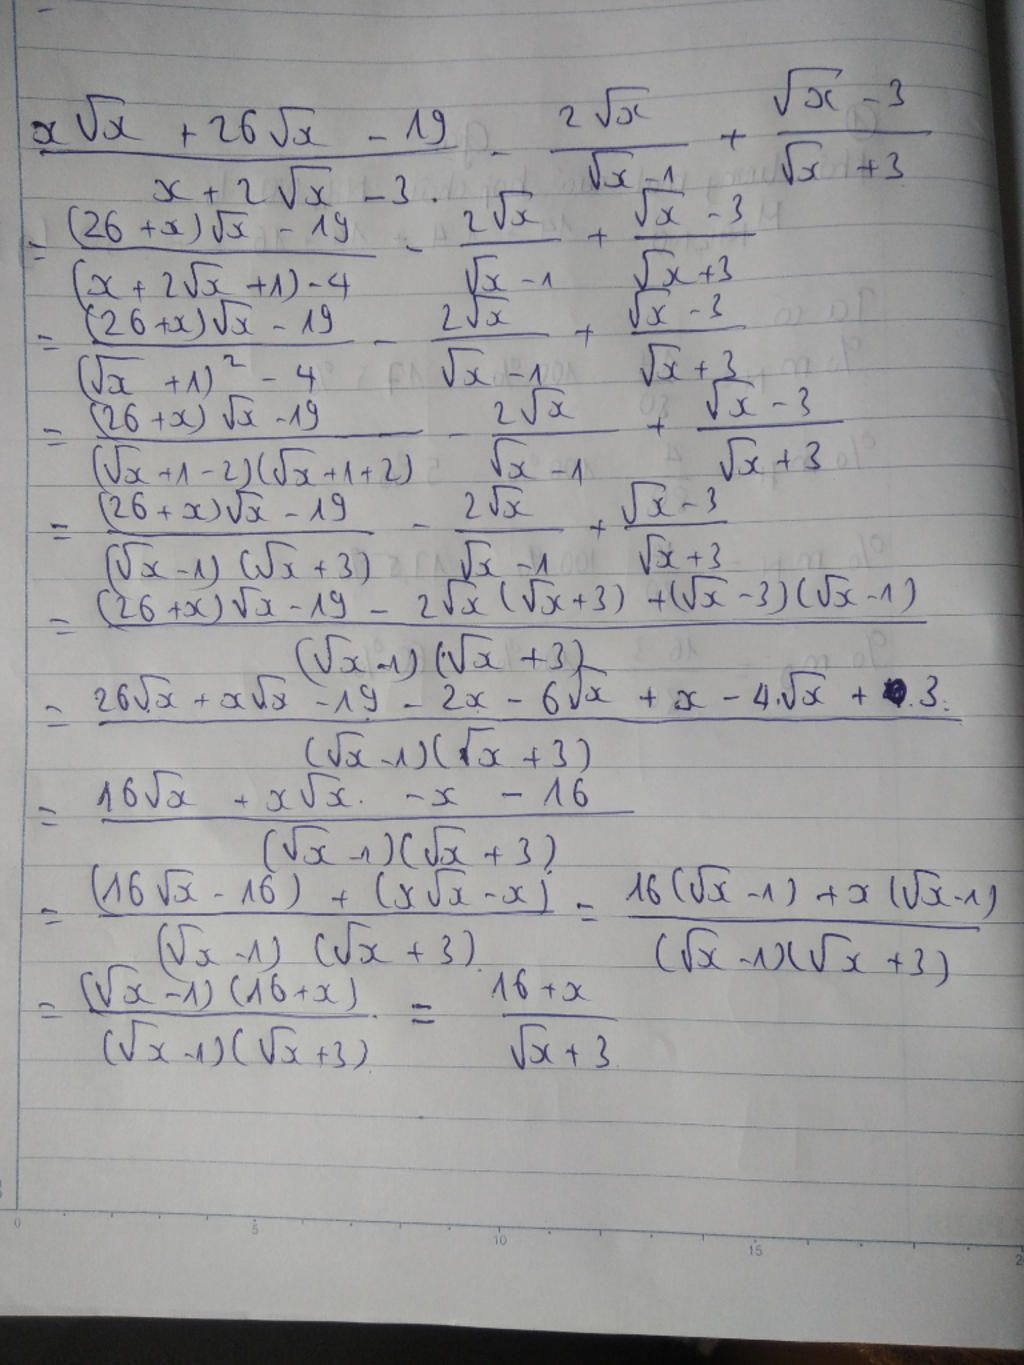 (x√x + 26√x - 19)/(x + 2√x - 3) - 2√x/(√x - 1) + (√x - 3)/(√x + 3)
= ((26 + x)√x - 19)/((x + 2√x + 1) - 4) - 2√x/(√x - 1) + (√x - 3)/(√x + 3)
= ((26 + x)√x - 19)/((√x + 1)² - 4) - 2√x/(√x - 1) + (√x - 3)/(√x + 3)
= ((26 + x)√x - 19)/((√x + 1 - 2)(√x + 1 + 2)) - 2√x/(√x - 1) + (√x - 3)/(√x + 3)
= ((26 + x)√x - 19)/((√x - 1)(√x + 3)) - 2√x/(√x - 1) + (√x - 3)/(√x + 3)
= ((26 + x)√x - 19 - 2√x(√x + 3) + (√x - 3)(√x - 1))/((√x - 1)(√x + 3))
= (26√x + x√x - 19 - 2x - 6√x + x - 4√x + 3)/((√x - 1)(√x + 3))
= (16√x + x√x - x - 16)/((√x - 1)(√x + 3))
= ((16√x - 16) + (x√x - x))/((√x - 1)(√x + 3)) = (16(√x - 1) + x(√x - 1))/((√x - 1)(√x + 3))
= ((√x - 1)(16 + x))/((√x - 1)(√x + 3)) = (16 + x)/(√x + 3)
0 5 10 15